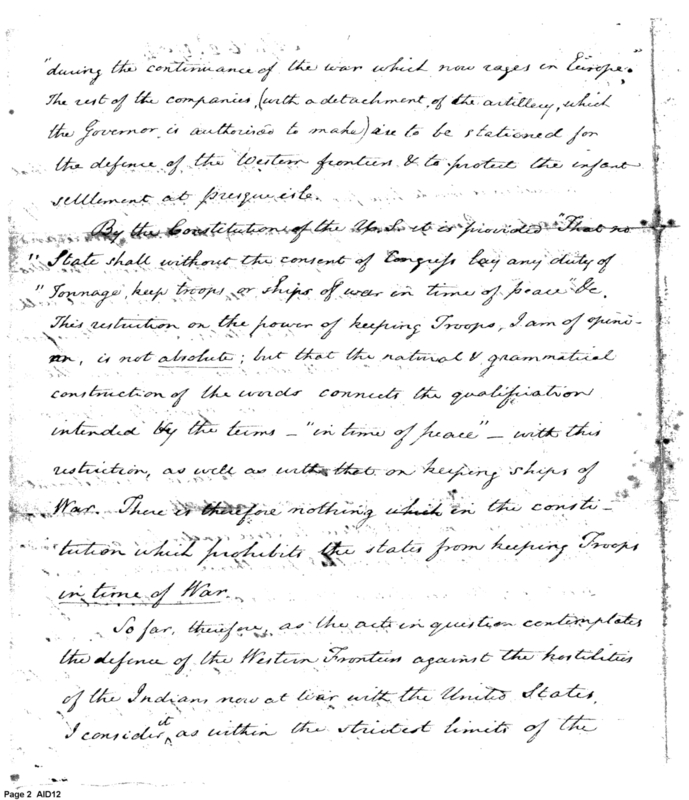 "during the continuance of the war which now rages in Europe."
The rest of the companies, (with a detachment, of the artillery, which
the Governor is authorised to make) are to be stationed for
the defence of the Western frontiers & to protect the infant
settlement at presque isle.
By the Constitution of the U.S. it is provided "That no
" State shall without the consent of Congress lay any duty of
" Tonnage, keep troops, or ships of war in time of peace" &c.
This restriction on the power of keeping Troops, I am of opini-
on, is not absolute; but that the natural & grammatical
construction of the words connects the qualification
intended by the terms – "in time of peace" – with this
restriction, as well as with that on keeping ships of
War. There is therefore nothing which in the consti-
tution which prohibits the states from keeping Troops
in time of War.
So far, therefore, as the act in question contemplates
the defence of the Western Frontiers against the hostilities
of the Indians now at war with the United States,
I consider it as within the strictest limits of the
Page 2 AID12